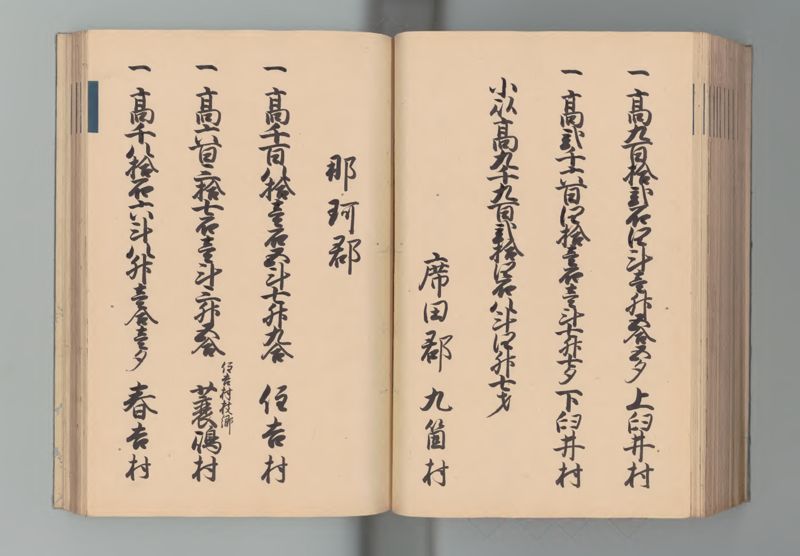 一高九百拾弐石四斗壱升五合五夕 上臼井村
一高弐千六百四拾壱石壱斗七升七夕 下臼井村
小以高九千九百弐拾四石八斗四升七才
席田郡 九箇村
那珂郡
一高千百八拾壱石五斗七升九合 住吉村
一高六百三拾七石壱斗三升五合 住吉村枝郷 蓑嶋村
一高千八拾石六斗八升壱合壱夕 春吉村